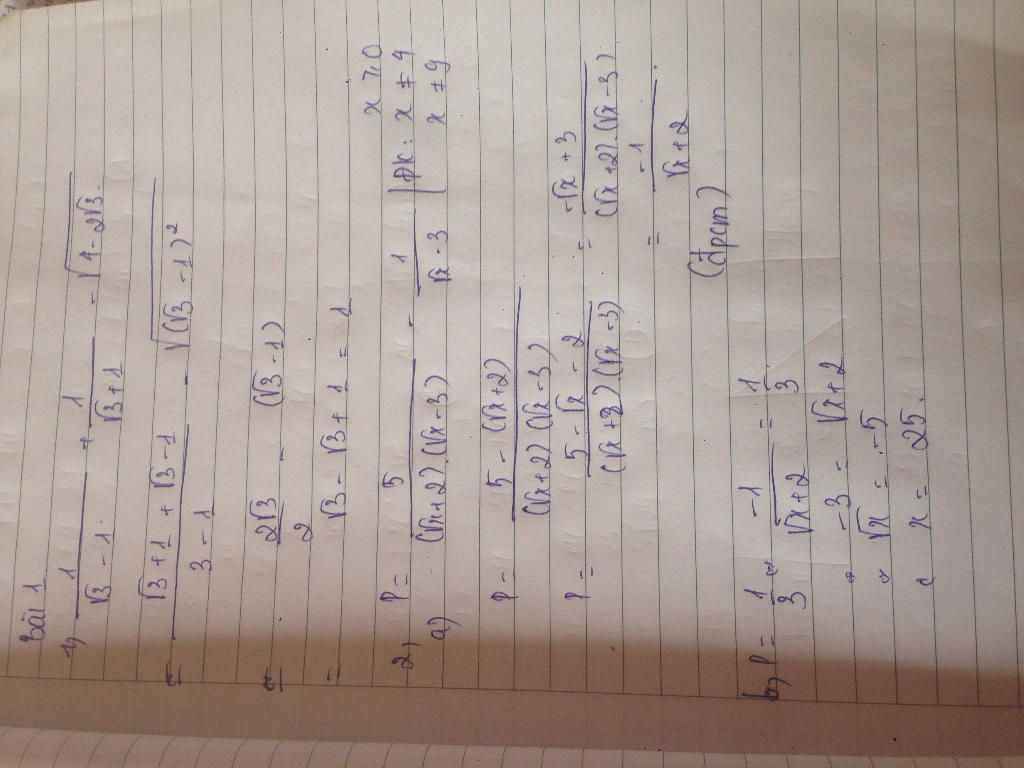 Bài 1
1) 1/(√3 - 1) + 1/(√3 + 1) - √(4 - 2√3).
= (√3 + 1 + √3 - 1)/(3 - 1) - √((√3 - 1)²)
= 2√3/2 - (√3 - 1)
= √3 - √3 + 1 = 1
2) P = 5/((√x+2).(√x-3)) - 1/(√x - 3) | ĐK: x ≥ 0 x ≠ 4 x ≠ 9
a)
P = (5 - (√x+2))/((√x+2)(√x-3))
P = (5 - √x - 2)/((√x+2).(√x-3)) = (-√x + 3)/((√x+2).(√x-3))
= -1/(√x+2).
(đpcm)
b) P = 1/3 ⇔ -1/(√x+2) = 1/3
⇔ -3 = √x+2
⇔ √x = -5
⇔ x = 25.